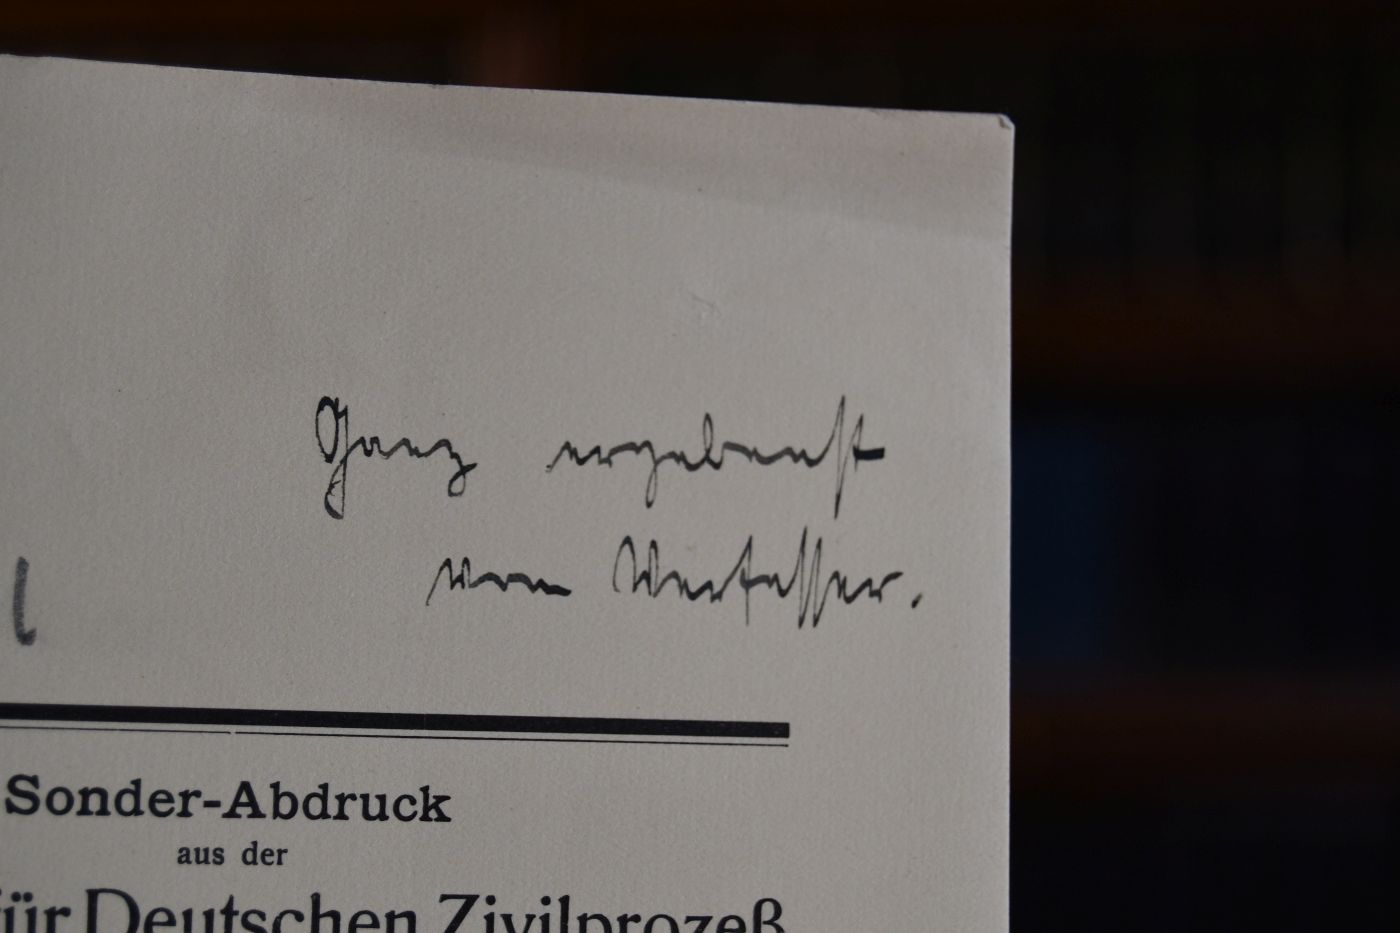 Ganz ergebenst
vom Verfasser.
Sonder-Abdruck
aus der
für Deutschen Zivilprozeß